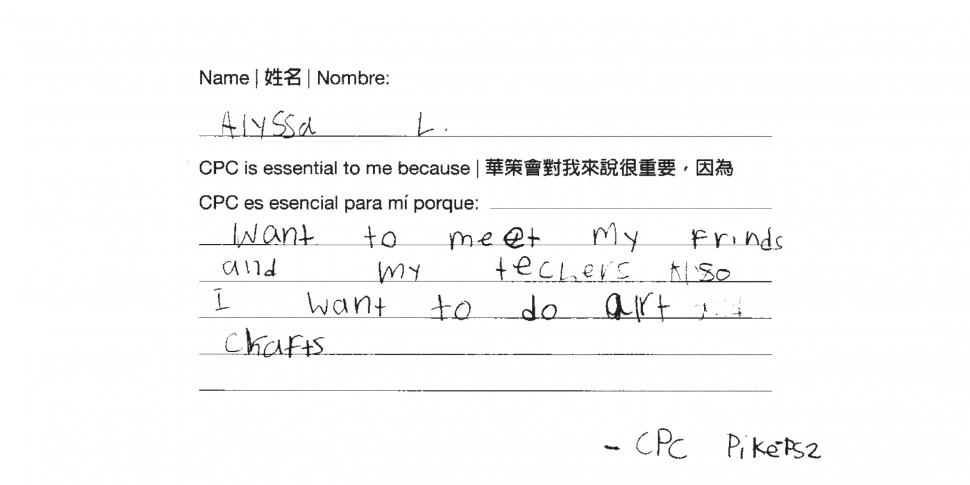 Name | 姓名 | Nombre:
Alyssa L.
CPC is essential to me because | 華策會對我來說很重要，因為
CPC es esencial para mí porque:
Want to meet my Frinds
and my techers Also
I want to do art
ckafts
- CPC PikePS2